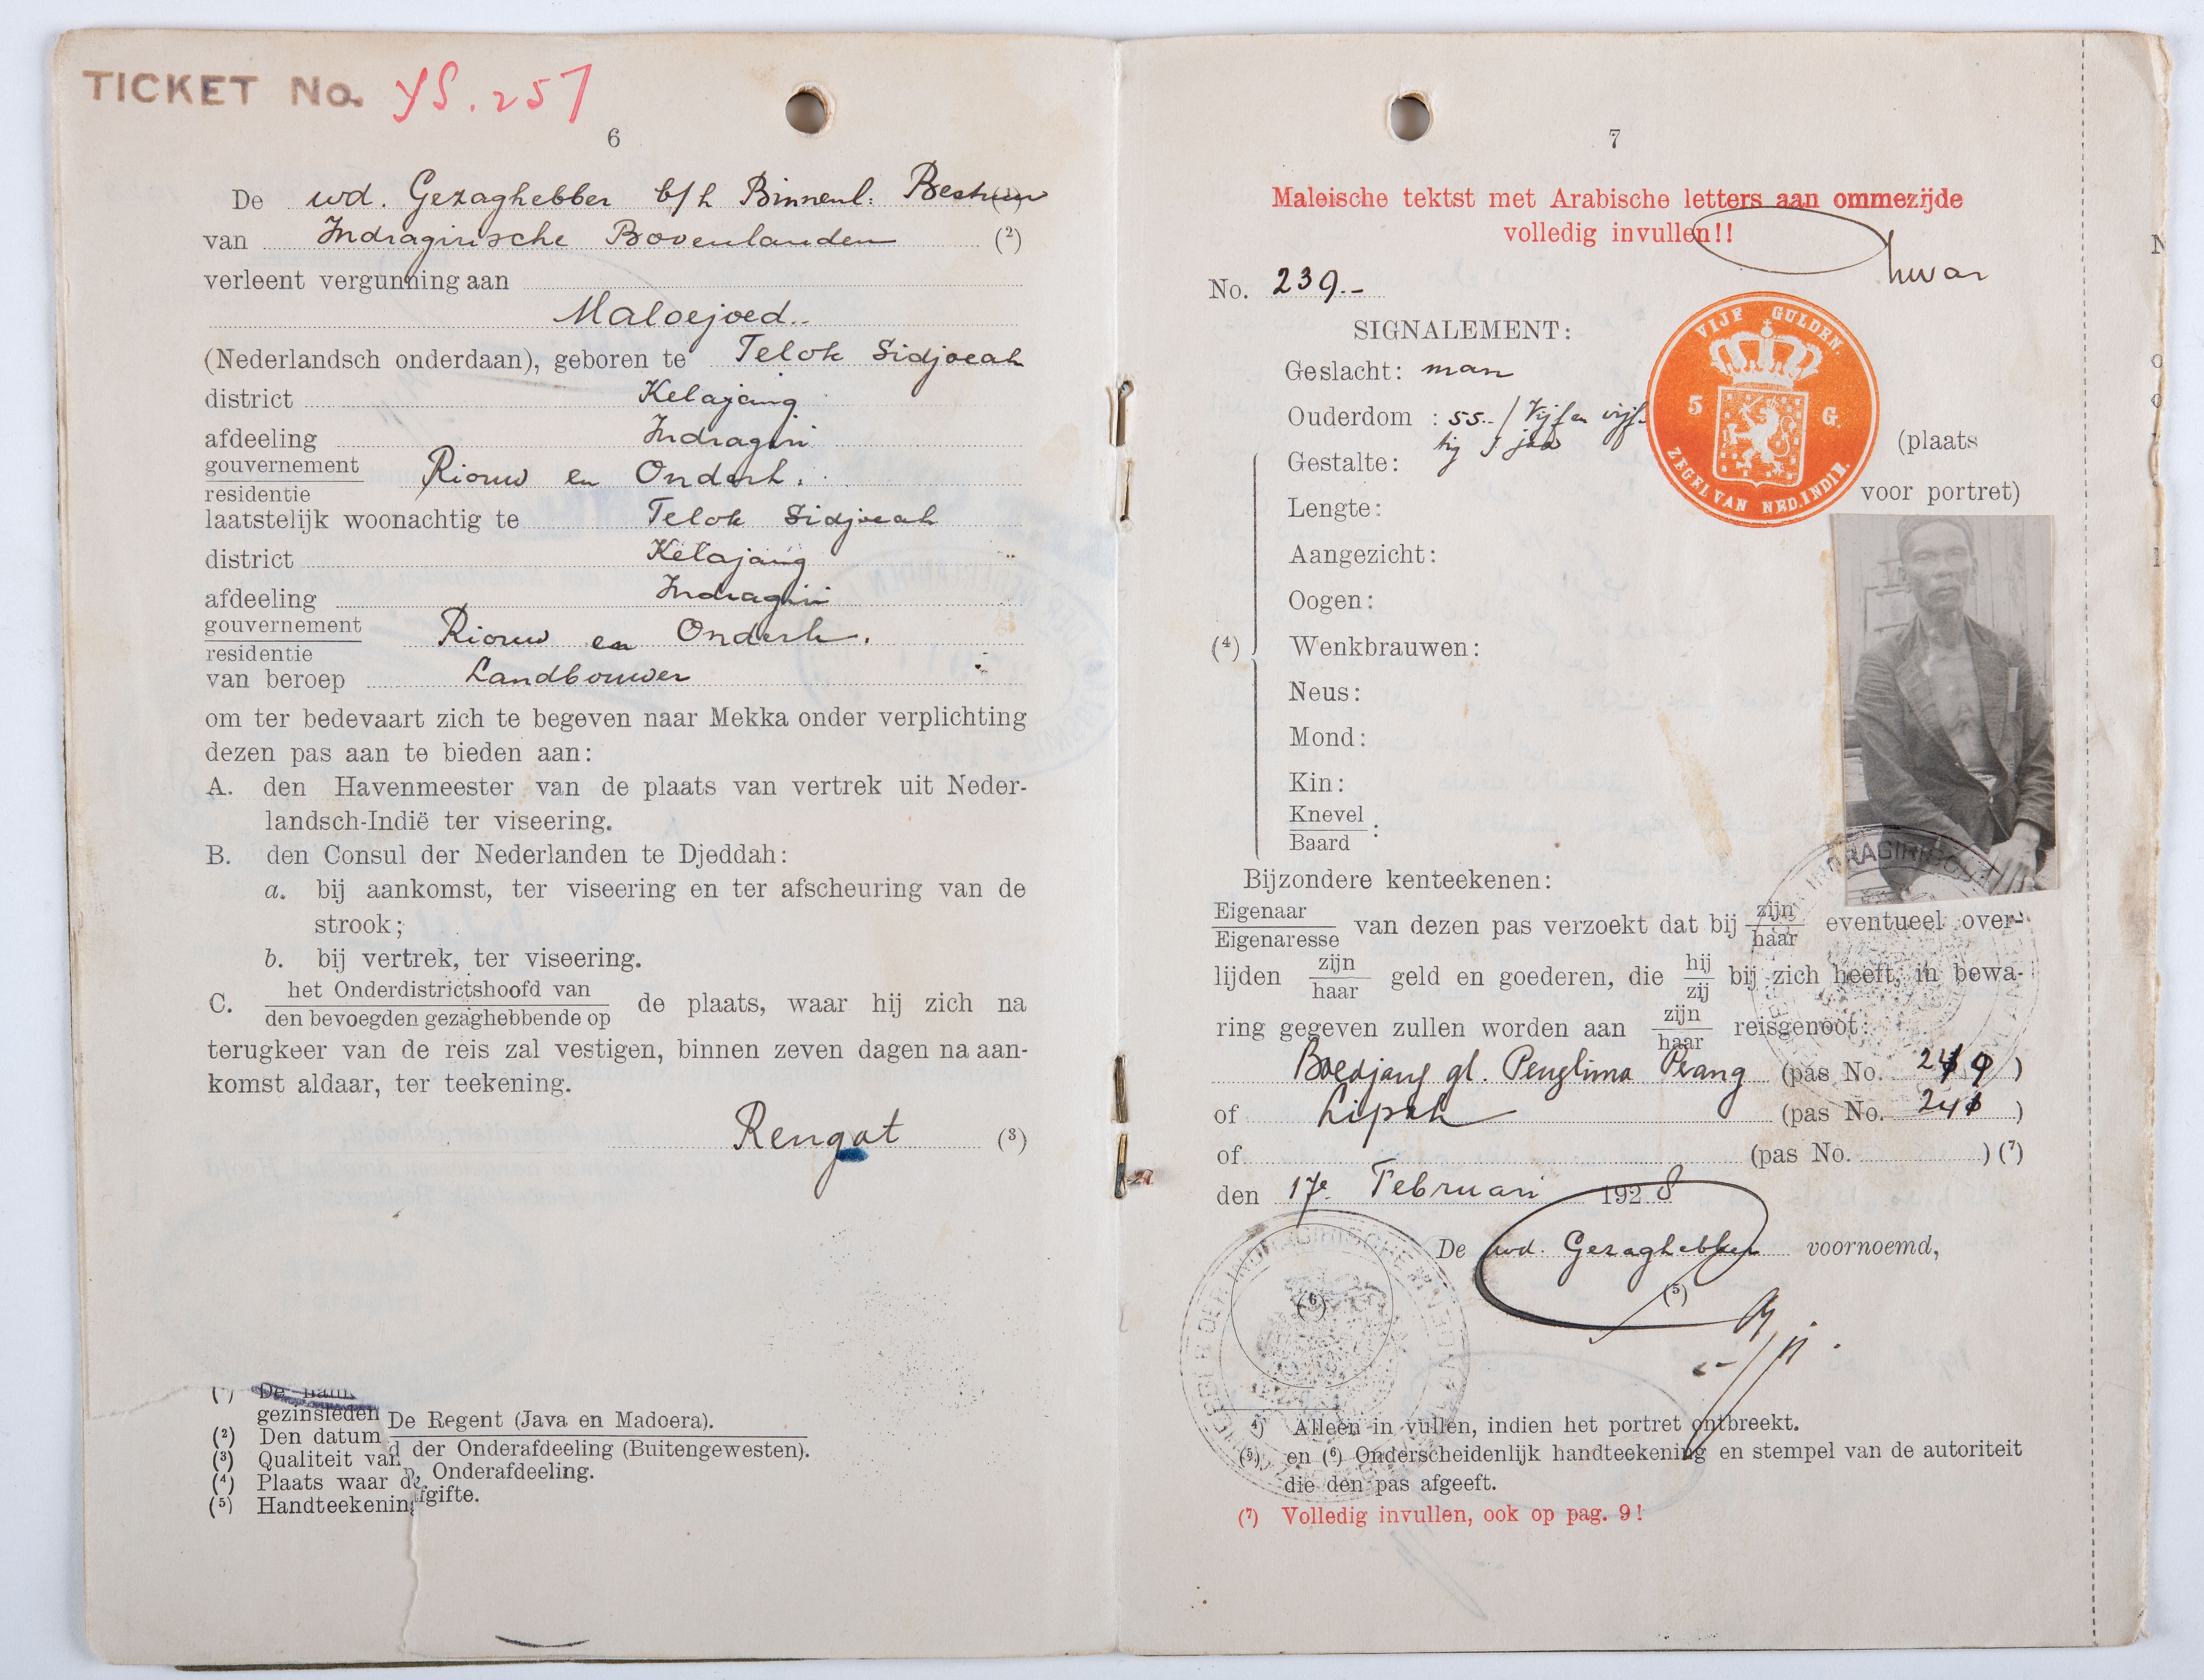 TICKET No. YS. 257
6
De wd. Gezaghebber b/h Binnenl: Bestuur (1)
van Indragirische Bovenlanden (2)
verleent vergunning aan
Maloejoed..
(Nederlandsch onderdaan), geboren te Telok Sidjoeah
district Kelajang
afdeeling Indragiri
gouvernement
residentie Riouw en Onderh.
laatstelijk woonachtig te Telok Sidjoeah
district Kelajang
afdeeling Indragiri
gouvernement
residentie Riouw en Onderh.
van beroep Landbouwer
om ter bedevaart zich te begeven naar Mekka onder verplichting
dezen pas aan te bieden aan:
A. den Havenmeester van de plaats van vertrek uit Neder-
landsch-Indië ter viseering.
B. den Consul der Nederlanden te Djeddah:
a. bij aankomst, ter viseering en ter afscheuring van de
strook;
b. bij vertrek, ter viseering.
C. het Onderdistrictshoofd van
den bevoegden gezaghebbende op de plaats, waar hij zich na
terugkeer van de reis zal vestigen, binnen zeven dagen na aan-
komst aldaar, ter teekening.
Rengat (3)
(1) De
gezinsleden De Regent (Java en Madoera).
(2) Den datum
d der Onderafdeeling (Buitengewesten).
(3) Qualiteit van
Onderafdeeling.
(4) Plaats waar de
fgifte.
(5) Handteekening
7
Maleische tektst met Arabische letters aan ommezijde
volledig invullen!!
No. 239.-
SIGNALEMENT:
VIJF GULDEN.
5 G.
ZEGEL VAN NED. INDIË.
Geslacht: man
Ouderdom : 55.-/ Vijf en vijf-
tig / jaar
Gestalte:
(plaats
voor portret)
Lengte:
Aangezicht:
Oogen:
(4) Wenkbrauwen:
Neus:
Mond:
Kin:
Knevel
Baard :
Bijzondere kenteekenen:
Eigenaar
Eigenaresse van dezen pas verzoekt dat bij zijn
haar eventueel over-
lijden zijn
haar geld en goederen, die hij
zij bij zich heeft, in bewa-
ring gegeven zullen worden aan zijn
haar reisgenoot:
Boedjang gl. Penglima Prang (pas No. )
of Lipah (pas No. )
of (pas No. ) (7)
den 17e Februari 1928
De wd. Gezaghebber voornoemd,
(5)
(6)
4) Alleen in vullen, indien het portret ontbreekt.
(5) en (6) Onderscheidenlijk handteekening en stempel van de autoriteit
die den pas afgeeft.
(7) Volledig invullen, ook op pag. 9!